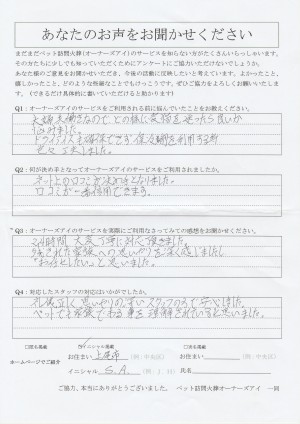 あなたのお声をお聞かせください
まだまだペット訪問火葬(オーナーズアイ)のサービスを知らない方がたくさんいらっしゃいます。
その方たちに少しでも知っていただくためにアンケートにご協力いただけないでしょうか。
あなた様のご意見をお聞かせいただき、今後の活動に反映したいと考えています。よかったこと、
嬉しかったこと、どのような些細なことでもけっこうです。ぜひご協力をよろしくお願いいたしま
す。（できるだけ具体的に書いていただけると助かります）
Q1：オーナーズアイのサービスをご利用される前に悩んでいたことをお教えください。
夫婦共働きなので どの様に愛猫を送ったら良いか
悩みました。
ドライアイスも確保できず 保冷剤を利用する等
色々工夫しました。
Q2：何が決め手となってオーナーズアイのサービスをご利用されましたか。
ネット上の口コミが決め手となりました。
口コミが一番信用できます。
Q3：オーナーズアイのサービスを実際にご利用なさってみての感想をお聞かせください。
24時間 大変丁寧に対応頂きました。
残された家族への思いやりを深く感じました。
"お任せしたい"と思いました。
Q4：対応したスタッフの対応はいかがでしたか。
礼儀正しく思いやりの深いスタッフの方で安心しました。
ペットも家族である事を理解されていると思いました。
□匿名掲載
イニシャル掲載
□実名掲載
ホームページでご紹介
お住まい 上尾市 （例：中央区）
お住まい （例：中央区）
イニシャル S.A. （例：J．H）
氏名
ご協力、本当にありがとうございました。 ペット訪問火葬オーナーズアイ 一同